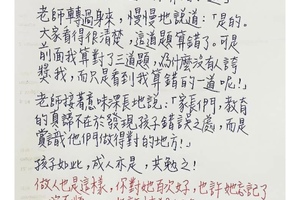 老師轉過身來，慢慢地說道：「是的。
大家看得很清楚，這道題算錯了。可是
前面我算對了三道題，為什麼沒有人誇
獎我，而只是看到我算錯的一道呢！」
老師接著意味深長地說：「家長們，教育
的真諦不在於發現孩子錯誤之處，而是
賞識他們做得對的地方！」
孩子如此，成人亦是，共勉之！
做人也是這樣，你對她百次好，也許她忘記了